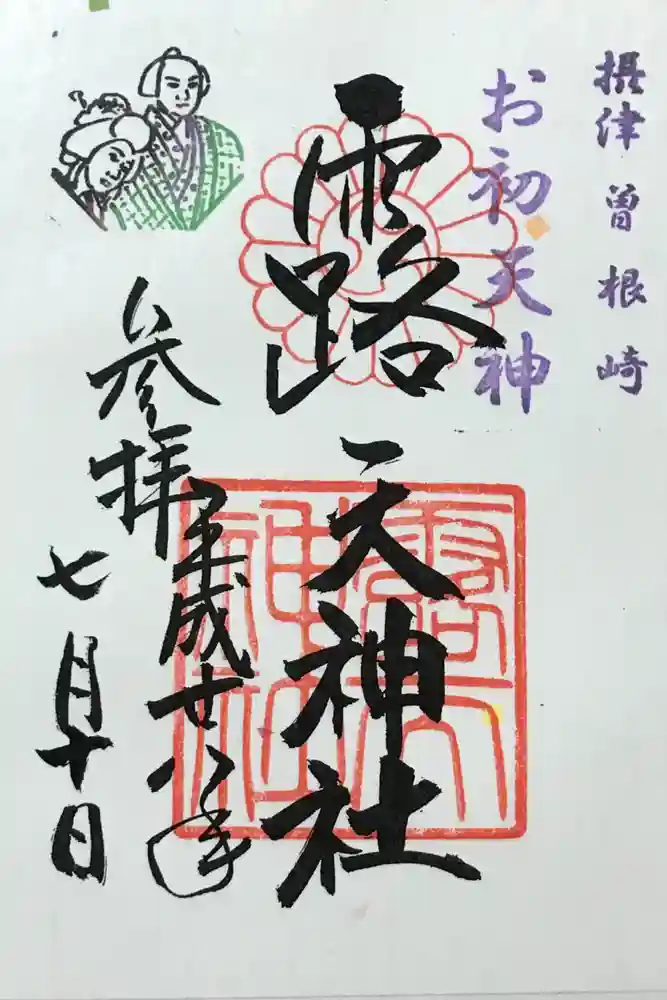 摂津 曽根崎
お初天神
露天神社
露天
神社
参拝
平成廿八年
七月十日